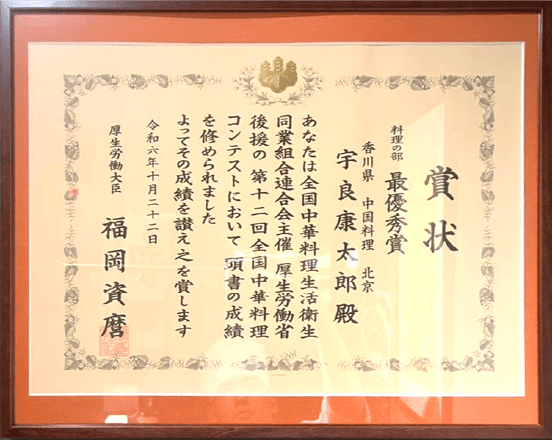 賞状
料理の部 最優秀賞
香川県 中国料理 北京
宇良康太郎殿
あなたは全国中華料理生活衛生
同業組合連合会主催 厚生労働省
後援の 第十二回全国中華料理
コンテストにおいて 頭書の成績
を修められました
よってその成績を讃え之を賞します
令和六年十月二十二日
厚生労働大臣 福岡資麿